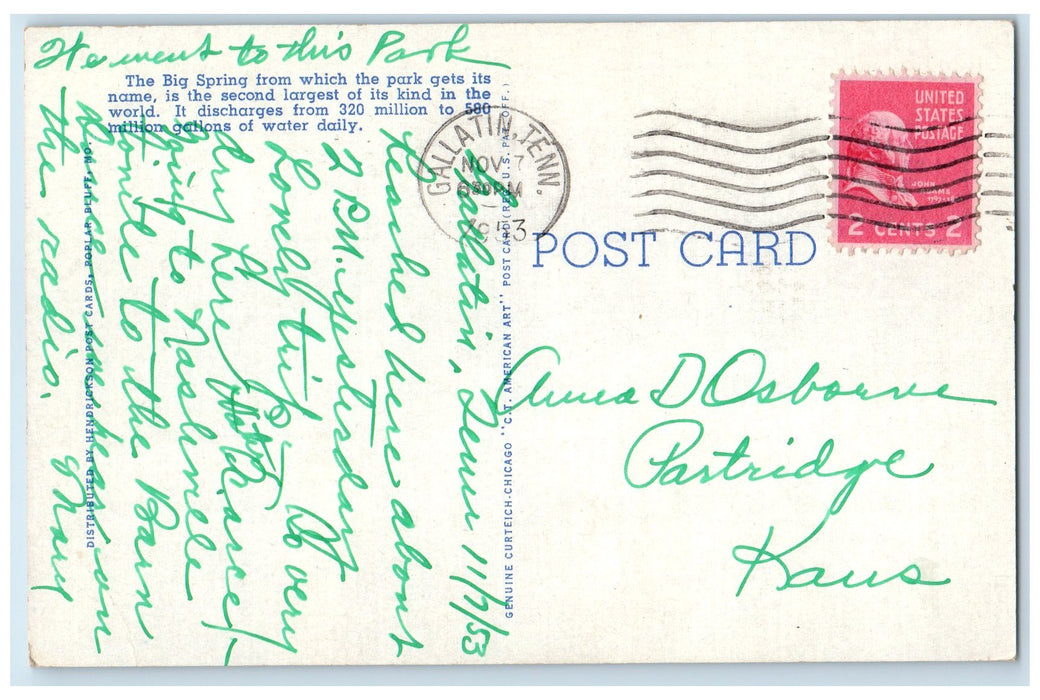 We went to this Park
The Big Spring from which the park gets its
name, is the second largest of its kind in the
world. It discharges from 320 million to 580
million gallons of water daily.
GALLATIN, TENN.
NOV 7
6 30 PM
1953
UNITED
STATES
POSTAGE
JOHN
ADAMS
2 CENTS 2
POST CARD
Gallatin, Tenn 11/7/53
reached here about
2 P.M. yesterday
Lovely trip. So very
dry here
going to Nashville
tonite to the Barn
Dance we hear on
the radio.
Mary
Anna D Osborne
Partridge
Kans
GENUINE CURTEICH-CHICAGO "C.T. AMERICAN ART" POST CARD (REG. U.S. PAT. OFF.)
DISTRIBUTED BY HENDRICKSON POST CARDS, POPLAR BLUFF, MO.